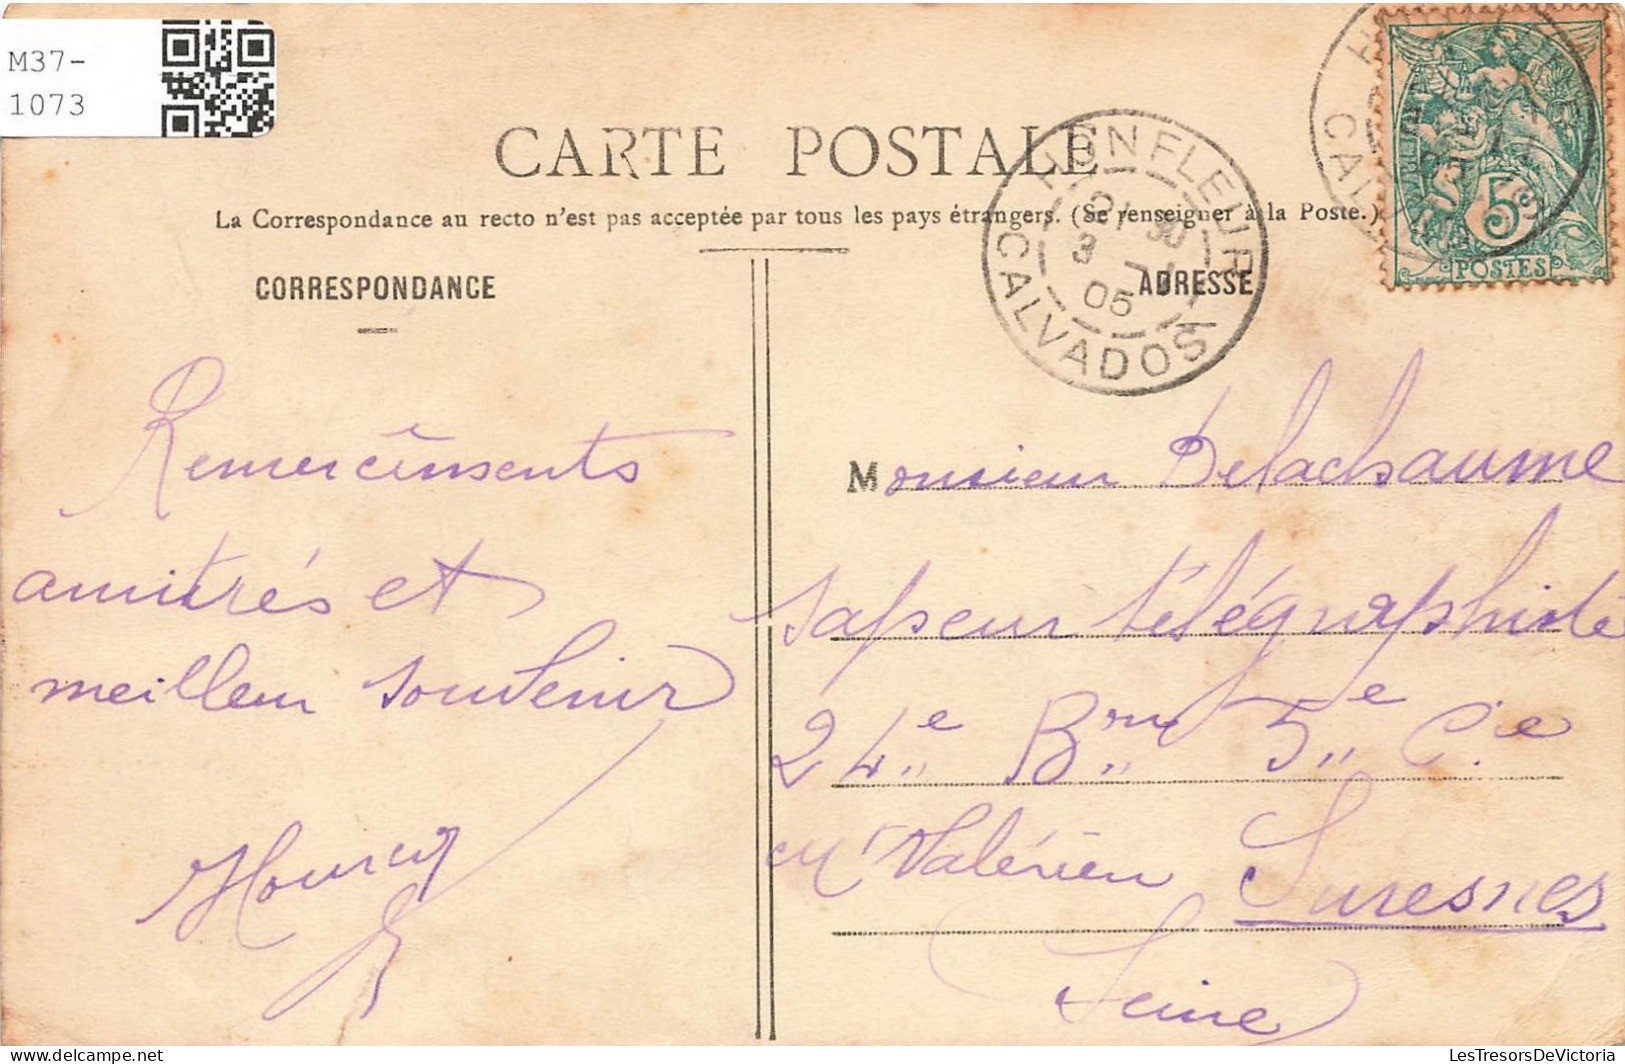 M37-
1073
CARTE POSTALE
La Correspondance au recto n'est pas acceptée par tous les pays étrangers. (Se renseigner à la Poste.)
HONFLEUR
3
05
CALVADOS
5
POSTES
CORRESPONDANCE
Remerciements
amitiés et
meilleur souvenir
ADRESSE
Monsieur Delachaume
sapeur télégraphiste
24e Bon 5e Cie
Mt Valérien Suresnes
Seine
delcampe.net
LesTresorsDeVictoria